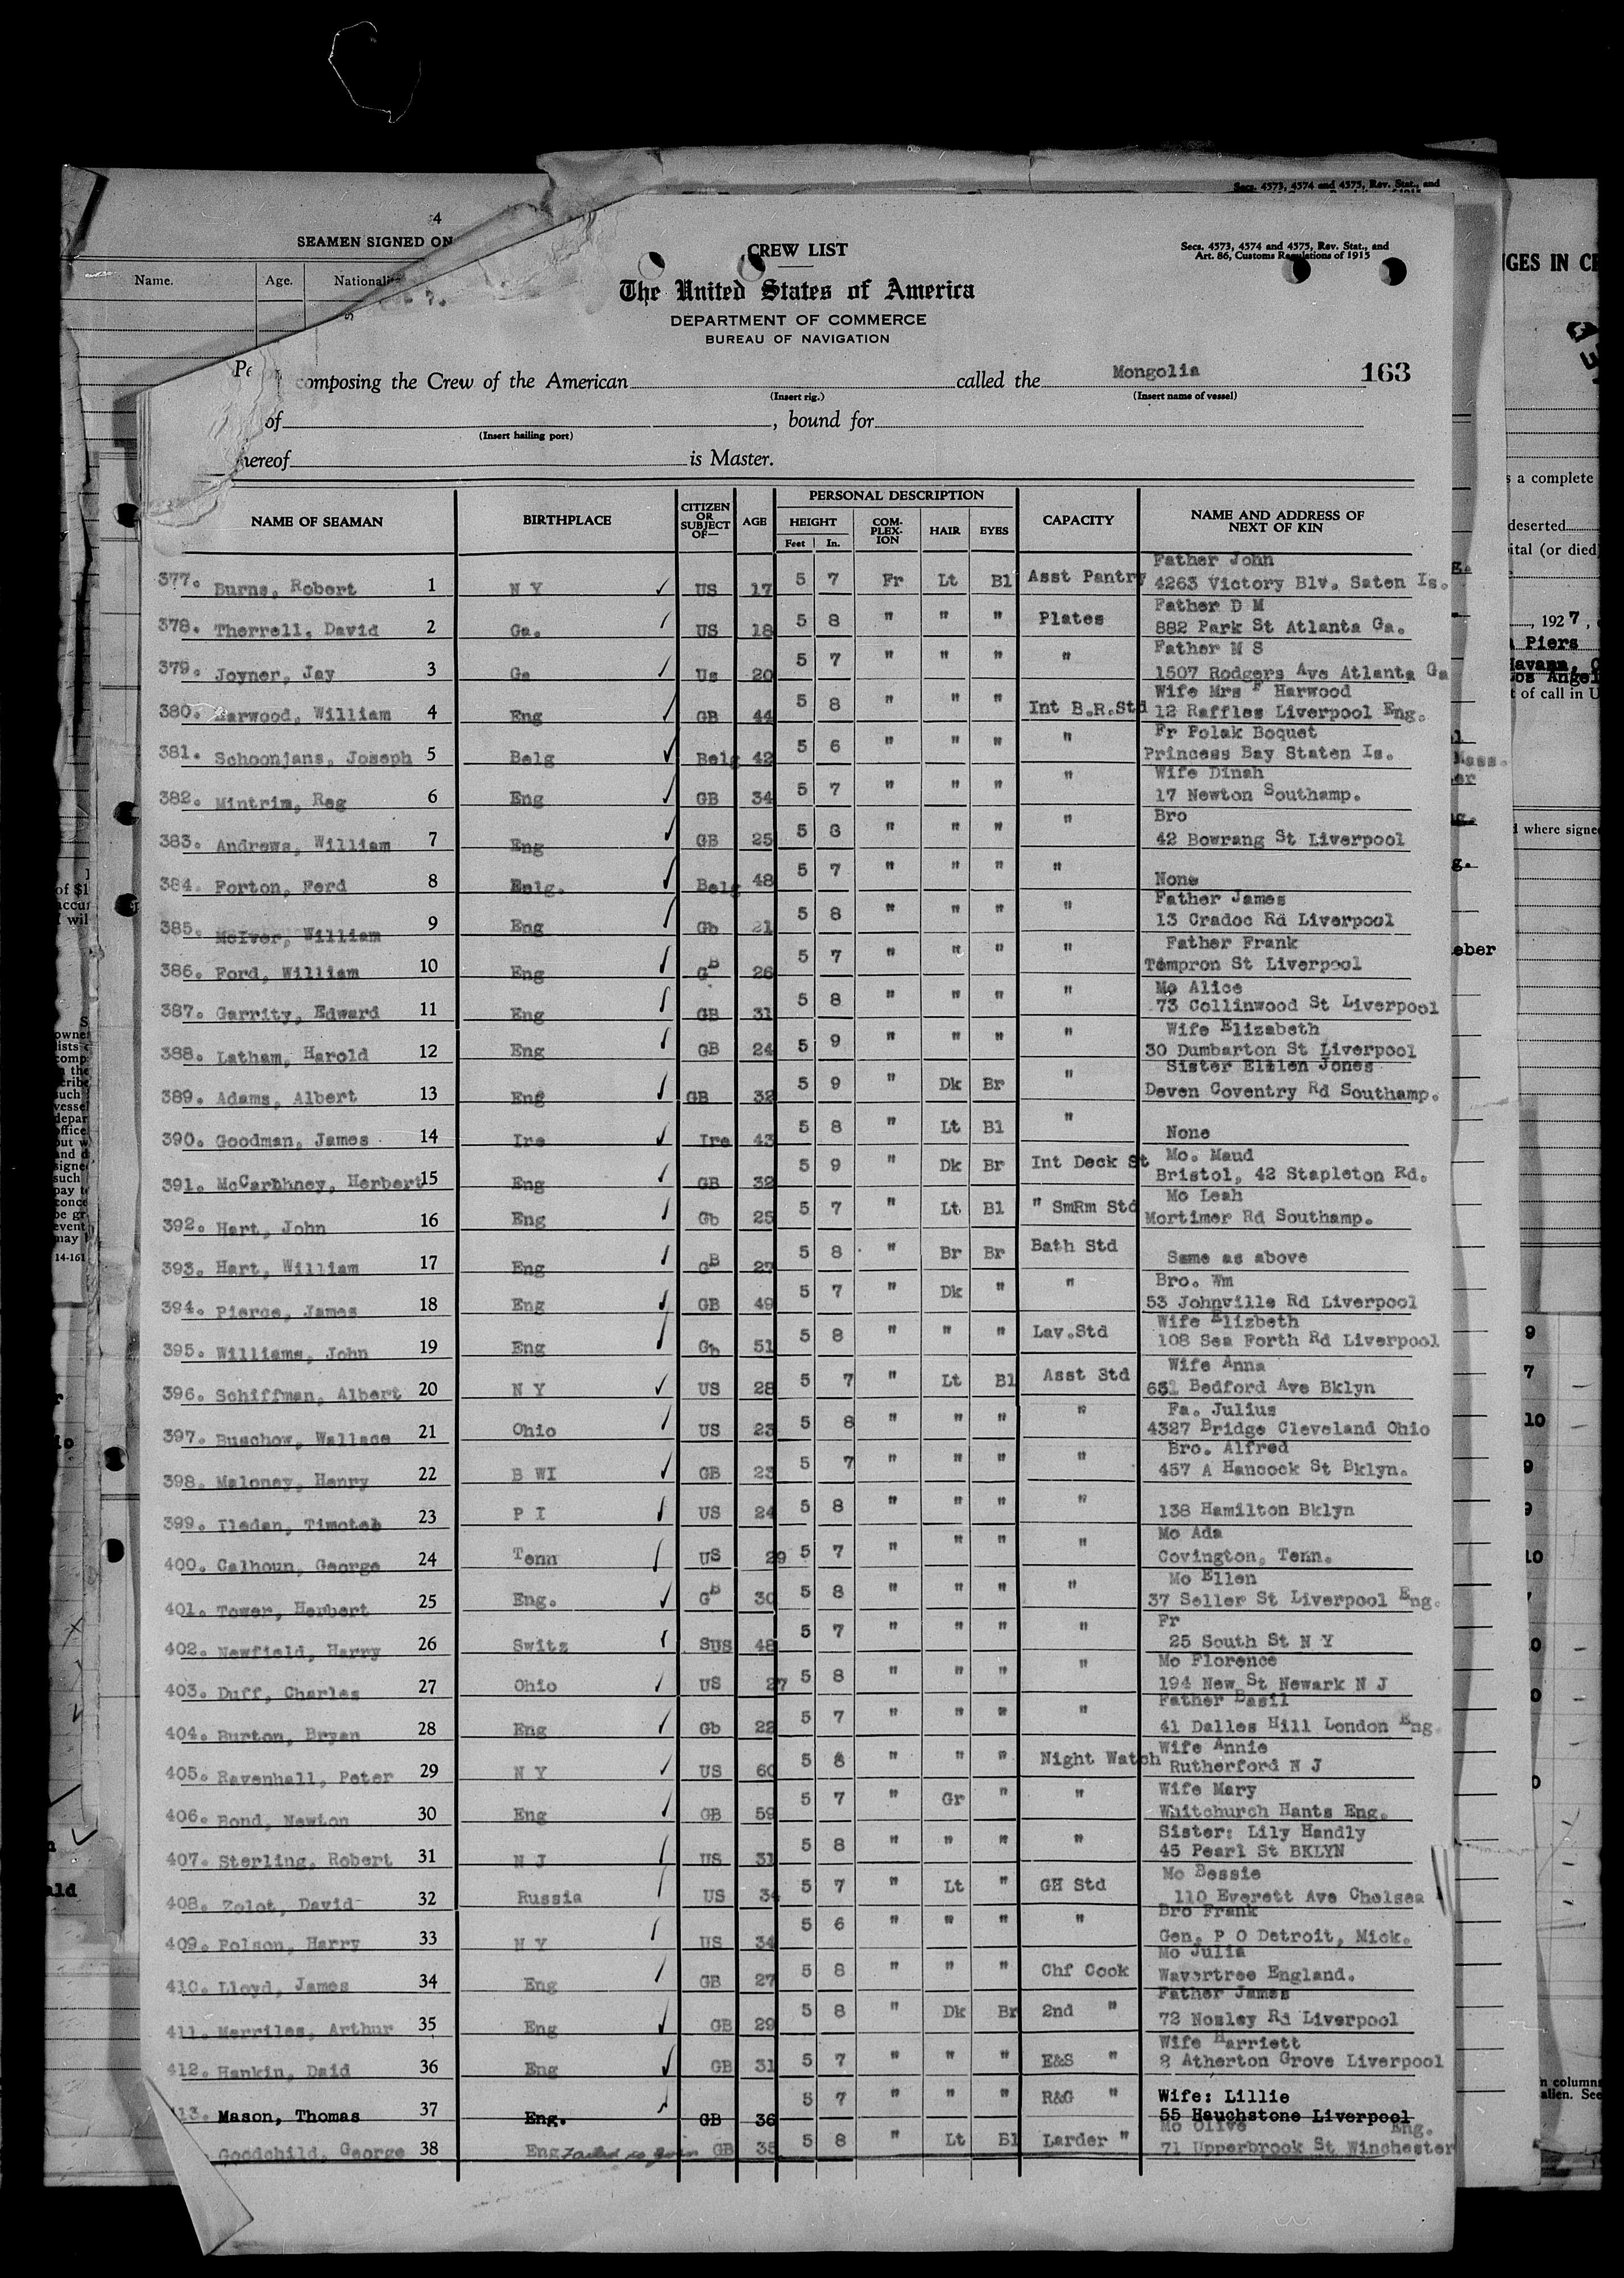 Secs. 4573, 4574 and 4575, Rev. Stat., and
4
SEAMEN SIGNED ON
Name. Age.
CREW LIST
Secs. 4573, 4574 and 4575, Rev. Stat., and
Art. 86, Customs Regulations of 1915
The United States of America
DEPARTMENT OF COMMERCE
BUREAU OF NAVIGATION
composing the Crew of the American called the Mongolia 163
(Insert rig.) (Insert name of vessel)
of , bound for
(Insert hailing port)
is Master.
NAME OF SEAMAN BIRTHPLACE CITIZEN OR SUBJECT OF— AGE PERSONAL DESCRIPTION CAPACITY NAME AND ADDRESS OF NEXT OF KIN
HEIGHT COM-PLEX-ION HAIR EYES
Feet In.
Father John
377. Burns, Robert 1 N Y US 17 5 7 Fr Lt Bl Asst Pantry 4263 Victory Blv. Saten Is.
Father D M
378. Therrell, David 2 Ga. US 18 5 8 " " " Plates 882 Park St Atlanta Ga.
Father M S
379. Joyner, Jay 3 Ga Us 20 5 7 " " " " 1507 Rodgers Ave Atlanta Ga
Wife Mrs F Harwood
380. Harwood, William 4 Eng GB 44 5 8 " " " Int B.R.Std 12 Raffles Liverpool Eng.
Fr Polak Boquet
381. Schoonjans, Joseph 5 Belg Belg 42 5 6 " " " " Princess Bay Staten Is.
Wife Dinah
382. Mintrim, Reg 6 Eng GB 34 5 7 " " " " 17 Newton Southamp.
Bro
383. Andrews, William 7 Eng GB 25 5 8 " " " " 42 Bowrang St Liverpool
384. Forton, Ferd 8 Belg. Belg 48 5 7 " " " " None
Father James
385. McIver, William 9 Eng Gb 21 5 8 " " " " 13 Cradoc Rd Liverpool
Father Frank
386. Ford, William 10 Eng GB 26 5 7 " " " " Tempron St Liverpool
Mo Alice
387. Garrity, Edward 11 Eng GB 31 5 8 " " " " 73 Collinwood St Liverpool
Wife Elizabeth
388. Latham, Harold 12 Eng GB 24 5 9 " " " " 30 Dumbarton St Liverpool
Sister Elllen Jones
389. Adams, Albert 13 Eng GB 32 5 9 " Dk Br " Deven Coventry Rd Southamp.
390. Goodman, James 14 Ire Ire 43 5 8 " Lt Bl " None
Mo. Maud
391. McCarhhney, Herbert 15 Eng GB 32 5 9 " Dk Br Int Deck St Bristol, 42 Stapleton Rd.
Mo Leah
392. Hart, John 16 Eng Gb 25 5 7 " Lt Bl " SmRm Std Mortimer Rd Southamp.
393. Hart, William 17 Eng GB 27 5 8 " Br Br Bath Std Same as above
Bro. Wm
394. Pierce, James 18 Eng GB 49 5 7 " Dk " " 53 Johnville Rd Liverpool
Wife Elizbeth
395. Williams, John 19 Eng Gb 51 5 8 " " " Lav.Std 108 Sea Forth Rd Liverpool
Wife Anna
396. Schiffman, Albert 20 N Y US 28 5 7 " Lt Bl Asst Std 631 Bedford Ave Bklyn
Fa. Julius
397. Buschow, Wallace 21 Ohio US 23 5 8 " " " " 4327 Bridge Cleveland Ohio
Bro. Alfred
398. Maloney, Henry 22 B WI GB 23 5 7 " " " " 457 A Hancock St Bklyn.
399. Iledan, Timoteb 23 P I US 24 5 8 " " " " 138 Hamilton Bklyn
Mo Ada
400. Calhoun, George 24 Tenn US 29 5 7 " " " " Covington, Tenn.
Mo Ellen
401. Tower, Herbert 25 Eng. GB 30 5 8 " " " " 37 Seller St Liverpool Eng.
Fr
402. Newfield, Harry 26 Switz SUS 48 5 7 " " " " 25 South St N Y
Mo Florence
403. Duff, Charles 27 Ohio US 27 5 8 " " " " 194 New St Newark N J
Father Basil
404. Burton, Bryan 28 Eng Gb 22 5 7 " " " " 41 Dalles Hill London Eng.
Wife Annie
405. Ravenhall, Peter 29 N Y US 60 5 8 " " " Night Watch Rutherford N J
Wife Mary
406. Bond, Newton 30 Eng GB 59 5 7 " Gr " " Whitchurch Hants Eng.
Sister: Lily Handly
407. Sterling, Robert 31 N J US 31 5 8 " " " " 45 Pearl St BKLYN
Mo Bessie
408. Zolot, David 32 Russia US 34 5 7 " Lt " GH Std 110 Everett Ave Chelsea
Bro Frank
409. Polson, Harry 33 N Y US 34 5 6 " " " " Gen. P O Detroit, Mick.
Mo Julia
410. Lloyd, James 34 Eng GB 27 5 8 " " " Chf Cook Wavertree England.
Father James
411. Merriles, Arthur 35 Eng GB 29 5 8 " Dk Br 2nd " 72 Nosley Rd Liverpool
Wife Harriett
412. Hankin, Daid 36 Eng GB 31 5 7 " " " E&S " 8 Atherton Grove Liverpool
Wife: Lillie
13. Mason, Thomas 37 Eng. GB 36 5 7 " " " R&G " 55 Hauchstone Liverpool
Mo Olive Eng.
Goodchild, George 38 Eng Failed to join GB 35 5 8 " Lt Bl Larder " 71 Upperbrook St Winchester